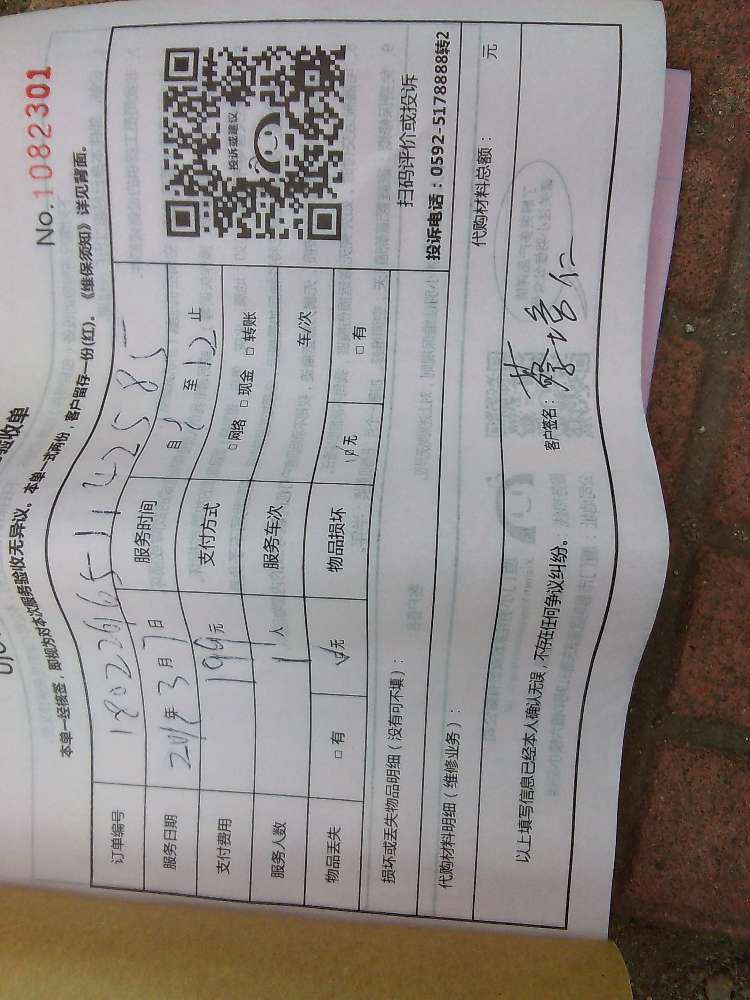 验收单
No.1082301
本单一经核签，即视为对本次服务验收无异议。本单一式两份，客户留存一份(红)。《维保须知》详见背面。
订单编号 18022665-1142585
服务日期 2018年3月7日 服务时间 自 至12止
支付费用 199元 支付方式 □网络 □现金 □转账
服务人数 1人 服务车次 车/次
物品丢失 □有 ☑无 物品损坏 ☑无 □有
投诉或建议
扫码评价或投诉
投诉电话：0592-5178888转2
损坏或丢失物品明细（没有可不填）：
代购材料明细（维修业务）： 代购材料总额： 元
以上填写信息已经本人确认无误，不存在任何争议纠纷。 客户签名：蔡培仁